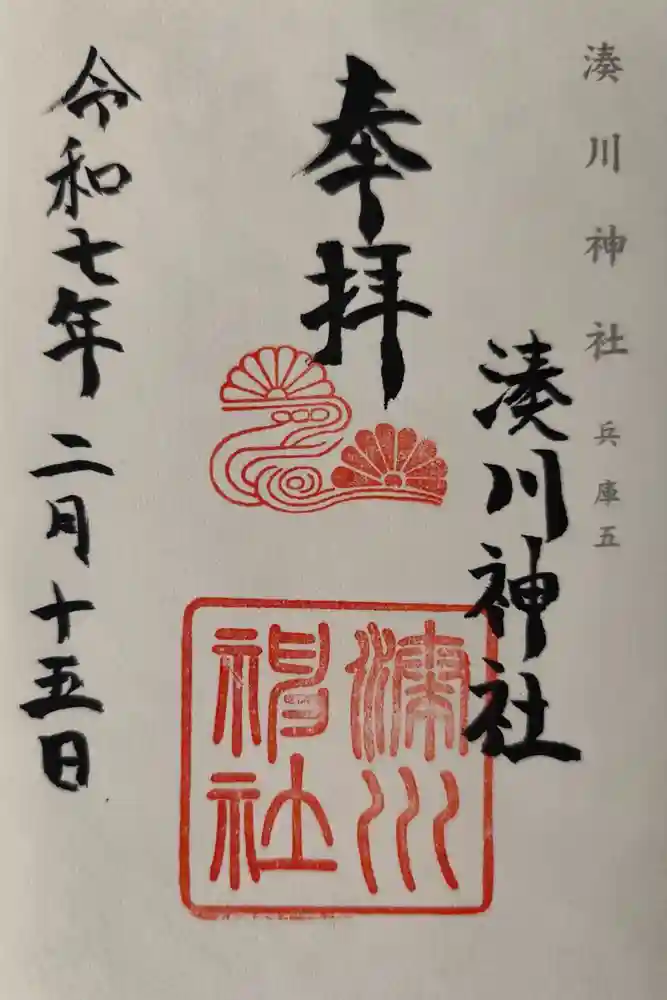 湊川神社 兵庫五
奉拝
湊川神社
令和七年二月十五日
湊川
神社